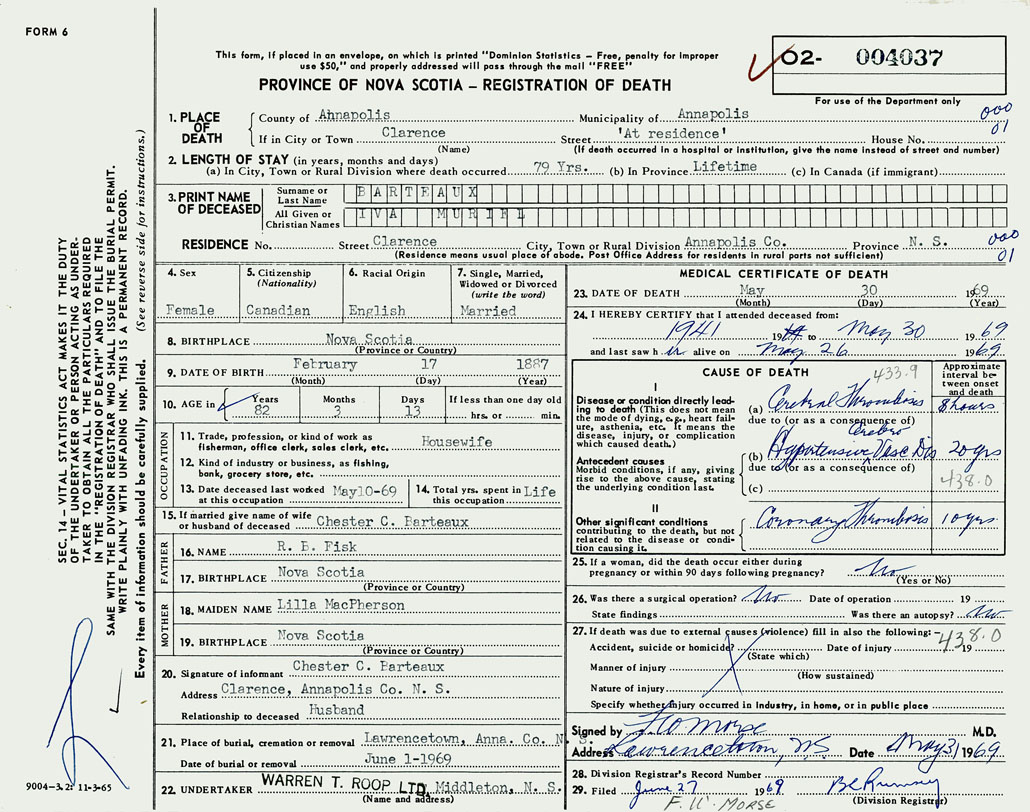 FORM 6
This form, if placed in an envelope, on which is printed "Dominion Statistics – Free, penalty for improper
use $50," and properly addressed will pass through the mail "FREE"
PROVINCE OF NOVA SCOTIA – REGISTRATION OF DEATH
O2- 004037
For use of the Department only
1. PLACE OF DEATH
County of Annapolis Municipality of Annapolis
000
01
If in City or Town Clarence Street 'At residence' House No.
(Name) (If death occurred in a hospital or institution, give the name instead of street and number)
2. LENGTH OF STAY (in years, months and days)
(a) In City, Town or Rural Division where death occurred 79 Yrs. (b) In Province Lifetime (c) In Canada (if immigrant)
3. PRINT NAME OF DECEASED
Surname or Last Name BARTEAUX
All Given or Christian Names IVA MURIEL
RESIDENCE No. Street Clarence City, Town or Rural Division Annapolis Co. Province N. S.
(Residence means usual place of abode. Post Office Address for residents in rural parts not sufficient)
000
01
4. Sex
Female
5. Citizenship
(Nationality)
Canadian
6. Racial Origin
English
7. Single, Married,
Widowed or Divorced
(write the word)
Married
8. BIRTHPLACE Nova Scotia
(Province or Country)
9. DATE OF BIRTH February 17 1887
(Month) (Day) (Year)
10. AGE in
Years Months Days If less than one day old
82 3 13 hrs. or min.
OCCUPATION
11. Trade, profession, or kind of work as
fisherman, office clerk, sales clerk, etc. Housewife
12. Kind of industry or business, as fishing,
bank, grocery store, etc.
13. Date deceased last worked May10-69
at this occupation
14. Total yrs. spent in Life
this occupation
15. If married give name of wife
or husband of deceased Chester C. Barteaux
FATHER
16. NAME R. B. Fisk
17. BIRTHPLACE Nova Scotia
(Province or Country)
MOTHER
18. MAIDEN NAME Lilla MacPherson
19. BIRTHPLACE Nova Scotia
(Province or Country)
20. Signature of informant Chester C. Barteaux
Address Clarence, Annapolis Co. N. S.
Relationship to deceased Husband
21. Place of burial, cremation or removal Lawrencetown, Anna. Co. N. S.
Date of burial or removal June 1-1969
22. UNDERTAKER WARREN T. ROOP LTD. Middleton, N. S.
(Name and address)
MEDICAL CERTIFICATE OF DEATH
23. DATE OF DEATH May 30 1969
(Month) (Day) (Year)
24. I HEREBY CERTIFY that I attended deceased from:
1941 19 to May 30 1969
and last saw her alive on May 26 1969
CAUSE OF DEATH 433.9
Approximate
interval be-
tween onset
and death
I
Disease or condition directly lead-
ing to death (This does not mean
the mode of dying, e.g., heart fail-
ure, asthenia, etc. It means the
disease, injury, or complication
which caused death.)
(a) Cerebral Thrombosis 8 hours
due to (or as a consequence of)
Antecedent causes
Morbid conditions, if any, giving
rise to the above cause, stating
the underlying condition last.
Cerebro
(b) Hypertensive Vasc Dis 20 yrs
due to (or as a consequence of)
438.0
(c)
II
Other significant conditions
contributing to the death, but not
related to the disease or condi-
tion causing it.
Coronary Thrombosis 10 yrs
25. If a woman, did the death occur either during
pregnancy or within 90 days following pregnancy? No
(Yes or No)
26. Was there a surgical operation? No Date of operation 19
State findings Was there an autopsy? No
27. If death was due to external causes (violence) fill in also the following:-
438.0
Accident, suicide or homicide? Date of injury 19
(State which)
Manner of injury
(How sustained)
Nature of injury
Specify whether injury occurred in industry, in home, or in public place
Signed by F W Morse M.D.
Address Lawrencetown, N.S. Date May 31 1969
28. Division Registrar's Record Number
29. Filed June 27 1969
(Division Registrar)
F. W. MORSE
SEC. 14 – VITAL STATISTICS ACT MAKES IT THE DUTY
OF THE UNDERTAKER OR PERSON ACTING AS UNDER-
TAKER TO OBTAIN ALL THE PARTICULARS REQUIRED
IN THE "REGISTRATION OF DEATH" AND TO FILE THE
SAME WITH THE DIVISION REGISTRAR WHO SHALL ISSUE THE BURIAL PERMIT.
WRITE PLAINLY WITH UNFADING INK. THIS IS A PERMANENT RECORD.
Every item of information should be carefully supplied. (See reverse side for instructions.)
9004-3.2: 11-3-65